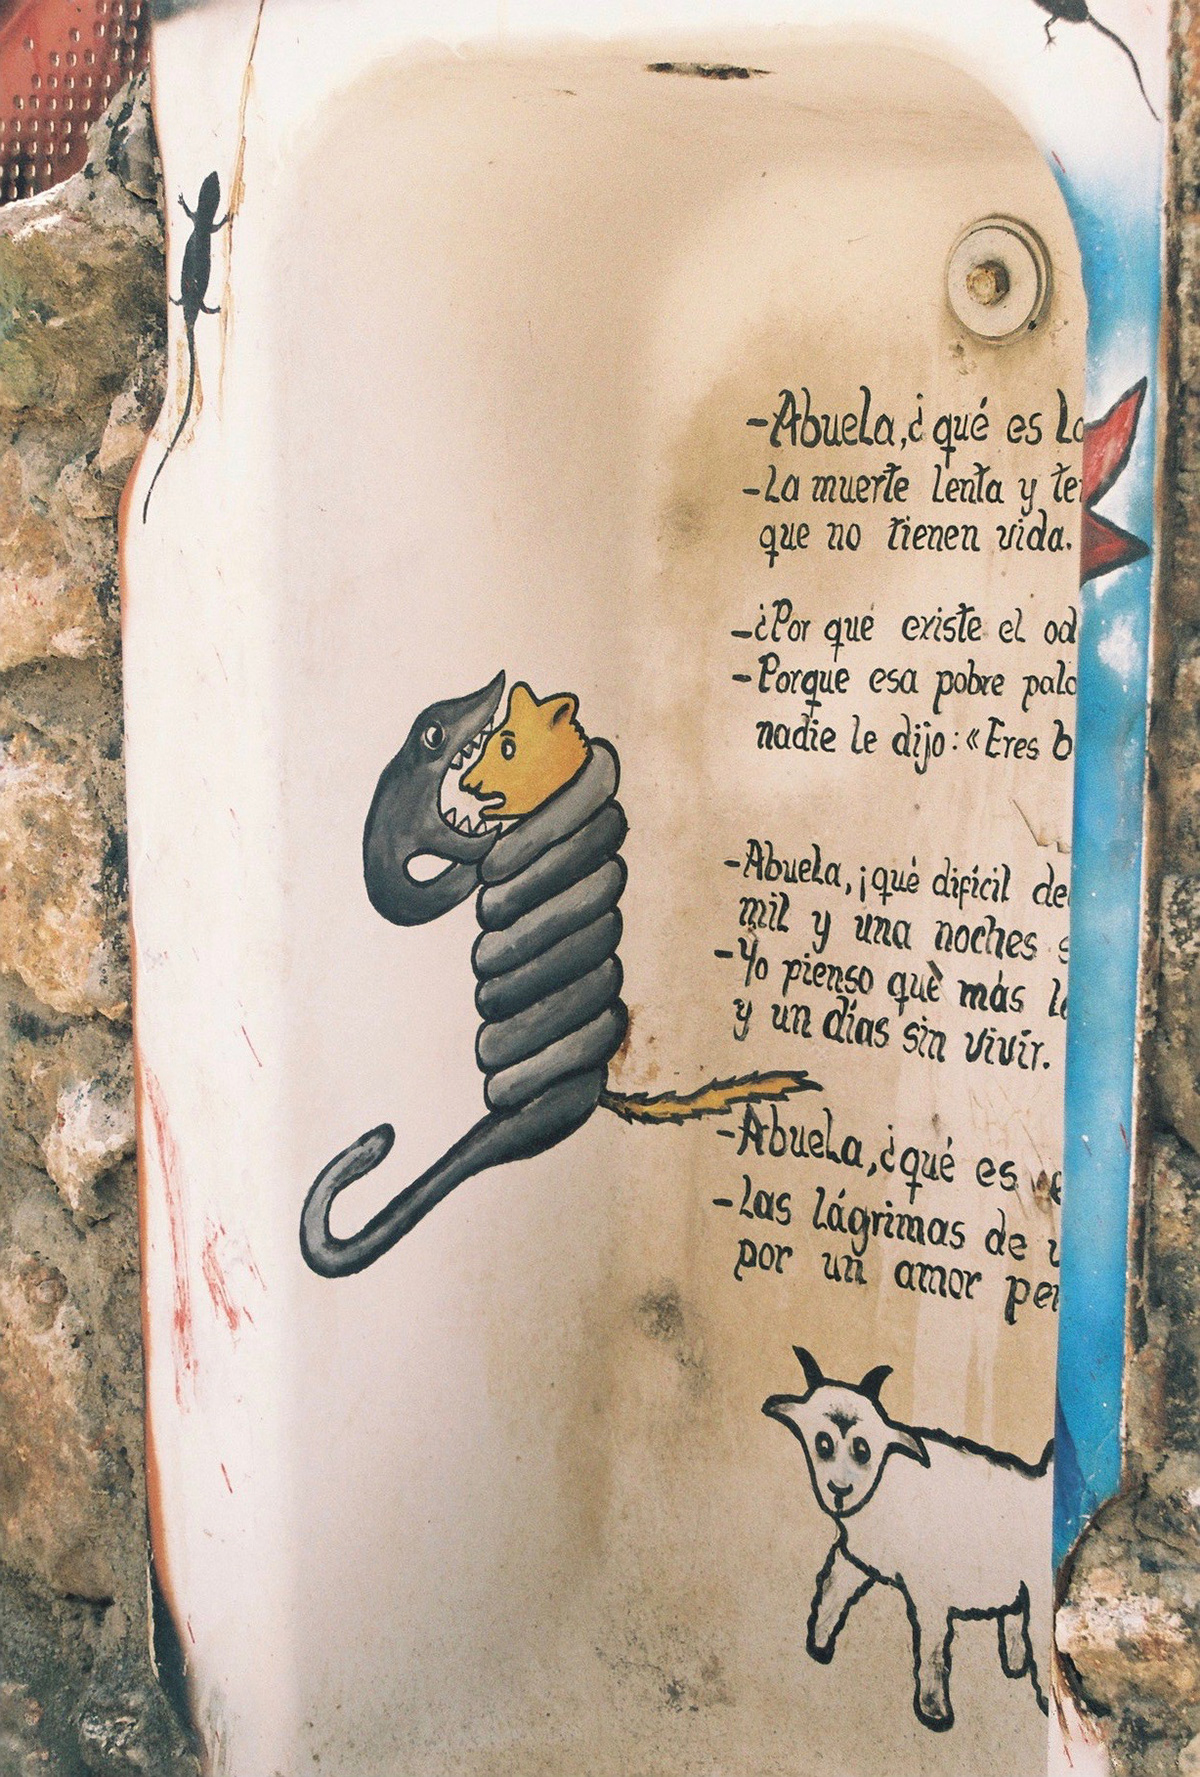 -Abuela, ¿qué es
-La muerte lenta y
que no tienen vida.
-¿Por qué existe el
-Porque esa pobre
nadie le dijo: «Eres
-Abuela, ¡qué difícil
mil y una noches
-Yo pienso què más
y un días sin vivir.
-Abuela, ¿qué es
-Las lágrimas de
por un amor